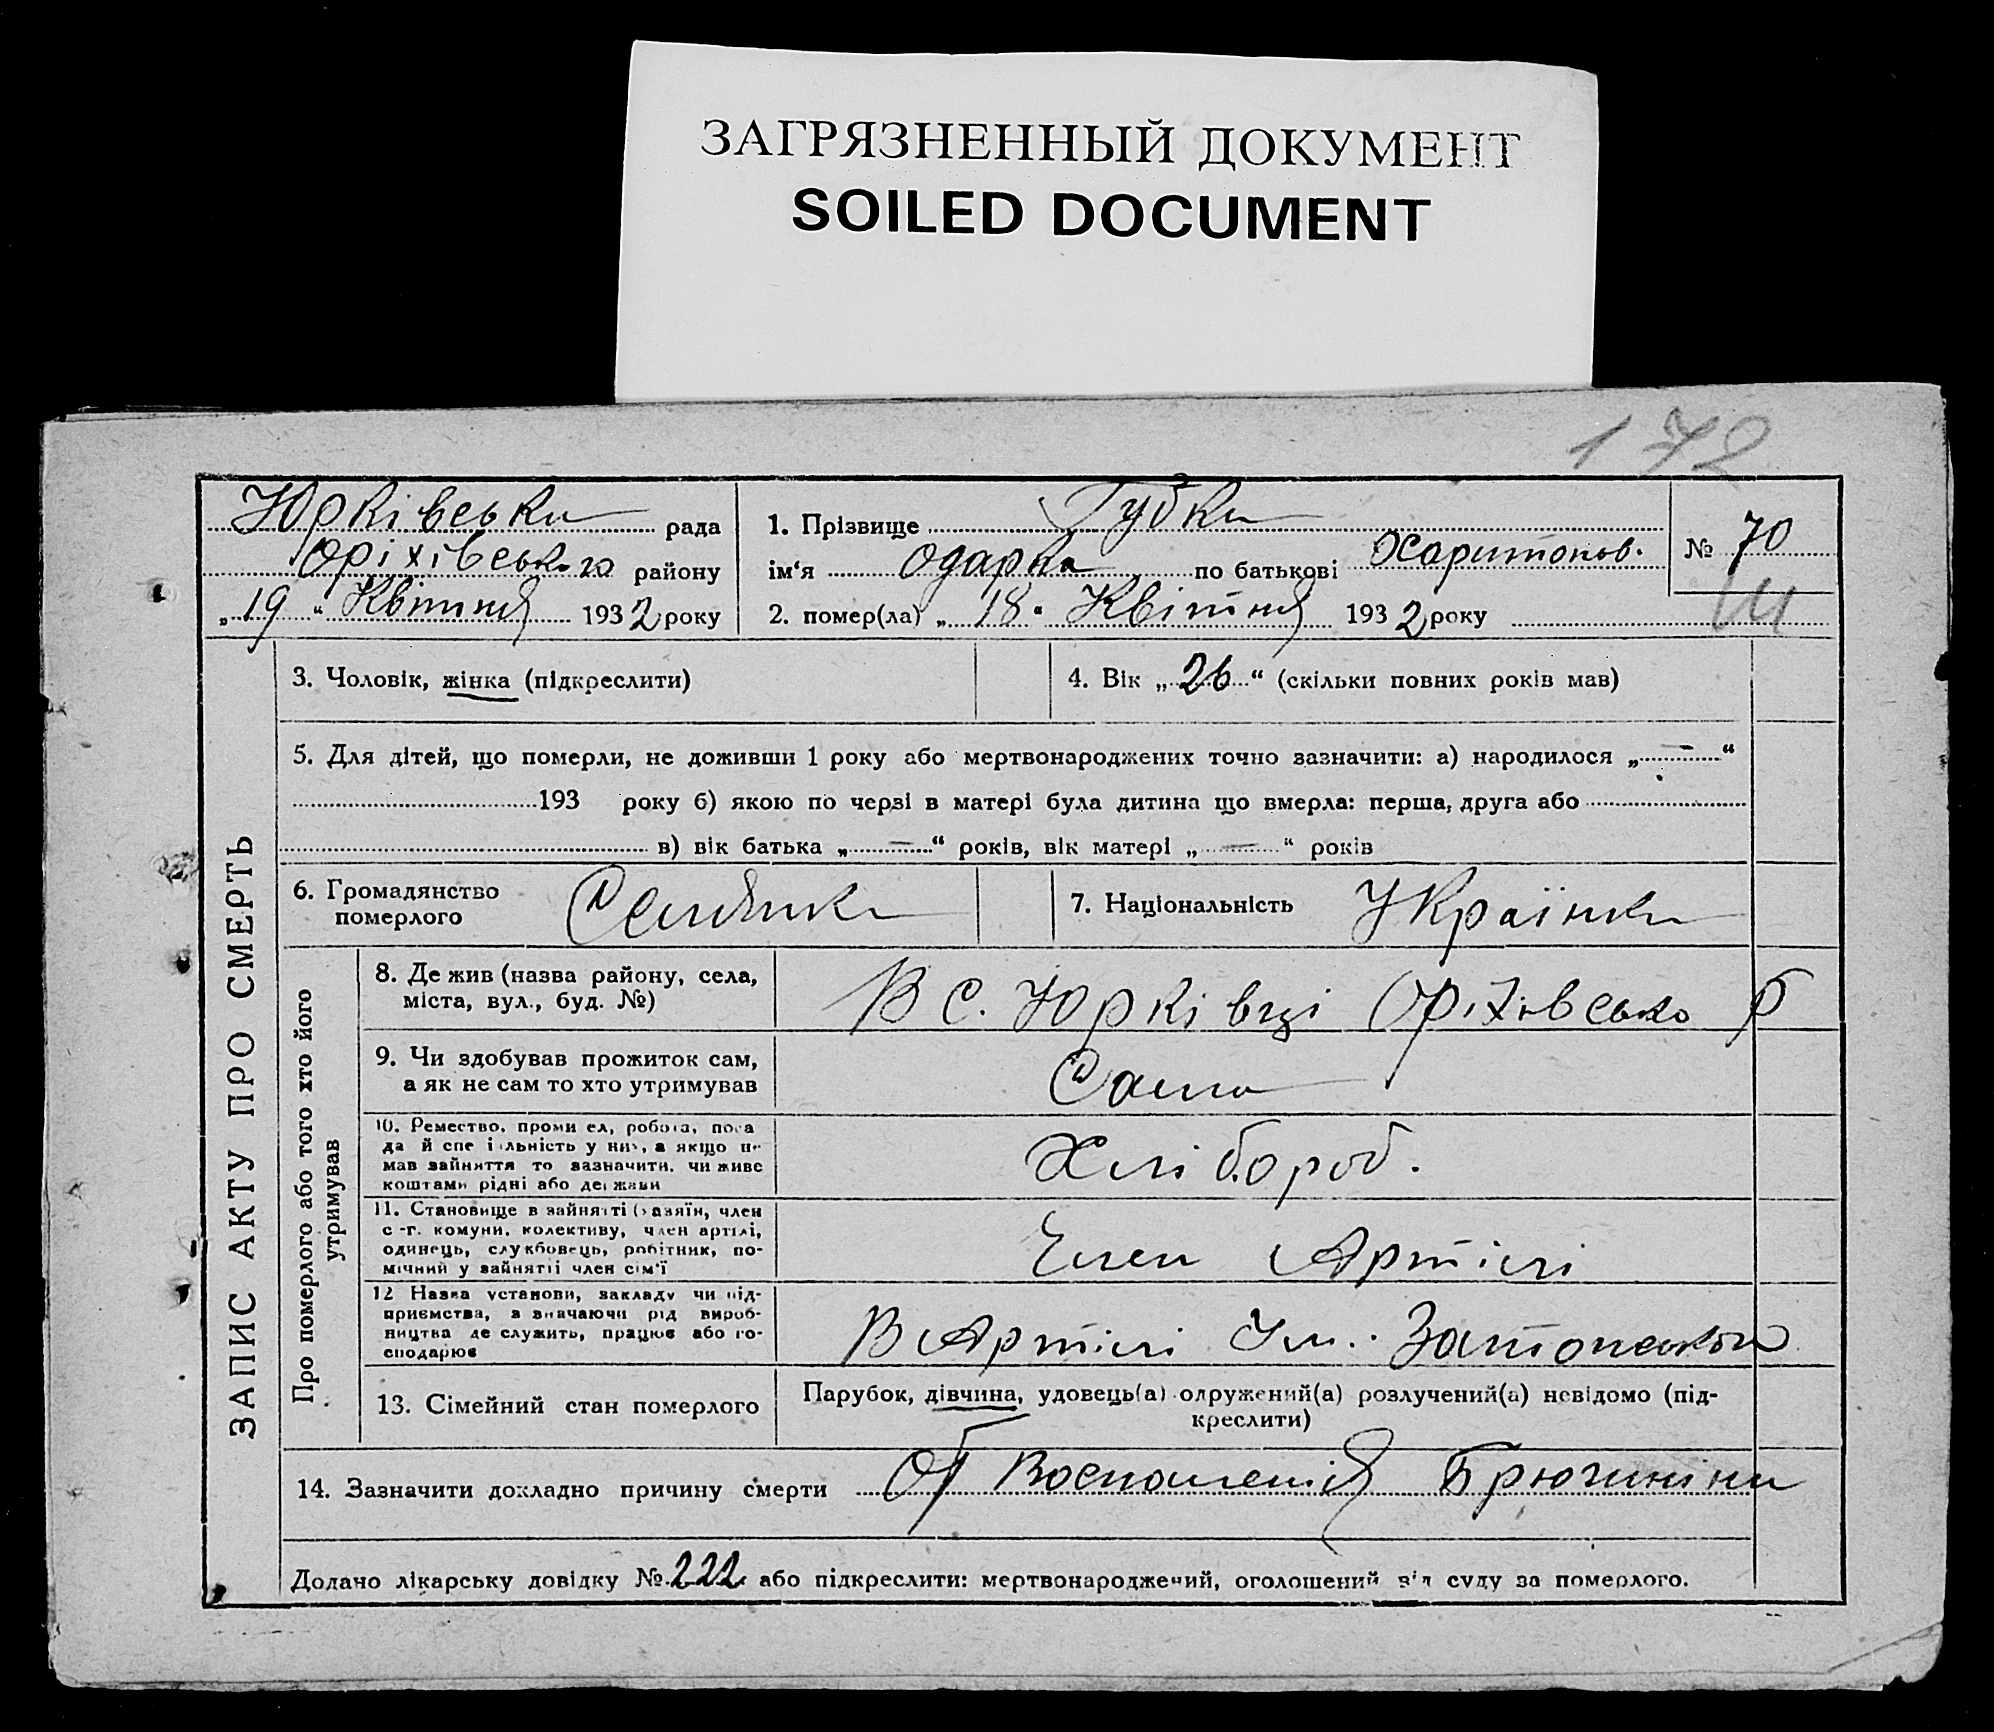 ЗАГРЯЗНЕННЫЙ ДОКУМЕНТ
SOILED DOCUMENT
172
Юрківська рада
Оріхівського району
„19“ Квітня 1932 року
1. Прізвище Губка
ім‘я Одарка по батькові Харитонов.
2. помер(ла) „18“ Квітня 1932 року
№ 70
ЗАПИС АКТУ ПРО СМЕРТЬ
3. Чоловік, жінка (підкреслити)
4. Вік „26“ (скільки повних років мав)
5. Для дітей, що померли, не доживши 1 року або мертвонароджених точно зазначити: а) народилося „—“
193 року б) якою по черзі в матері була дитина що вмерла: перша, друга або
в) вік батька „—“ років, вік матері „—“ років
6. Громадянство
померлого Селянка
7. Національність Українка
Про померлого або того хто його
утримував
8. Де жив (назва району, села,
міста, вул., буд. №)
В с. Юрківці Оріхівсько р
9. Чи здобував прожиток сам,
а як не сам то хто утримував
Сама
10. Ремество, проми ел, робота, поса
да й спе і льність у ни, а якщо н
мав зайняття то зазначити, чи живе
коштами рідні або держави
Хлібороб.
11. Становище в зайнятті (хазяїн, член
с -г. комуни, колективу, член артілі,
одинець, службовець, робітник, по-
мічний у зайнятії член сім'ї
Член Артілі
12 Назва установи, закладу чи під-
приємства, з значаючи рід вироб-
ництва де служить, працює або го-
сподарює
В Артілі Ім. Затонського
13. Сімейний стан померлого
Парубок, дівчина, удовець(а) одружений(а) розлучений(а) невідомо (під-
креслити)
14. Зазначити докладно причину смерти От Восполенія Брюшніни
Додано лікарську довідку № 222 або підкреслити: мертвонароджений, оголошений від суду за померлого.